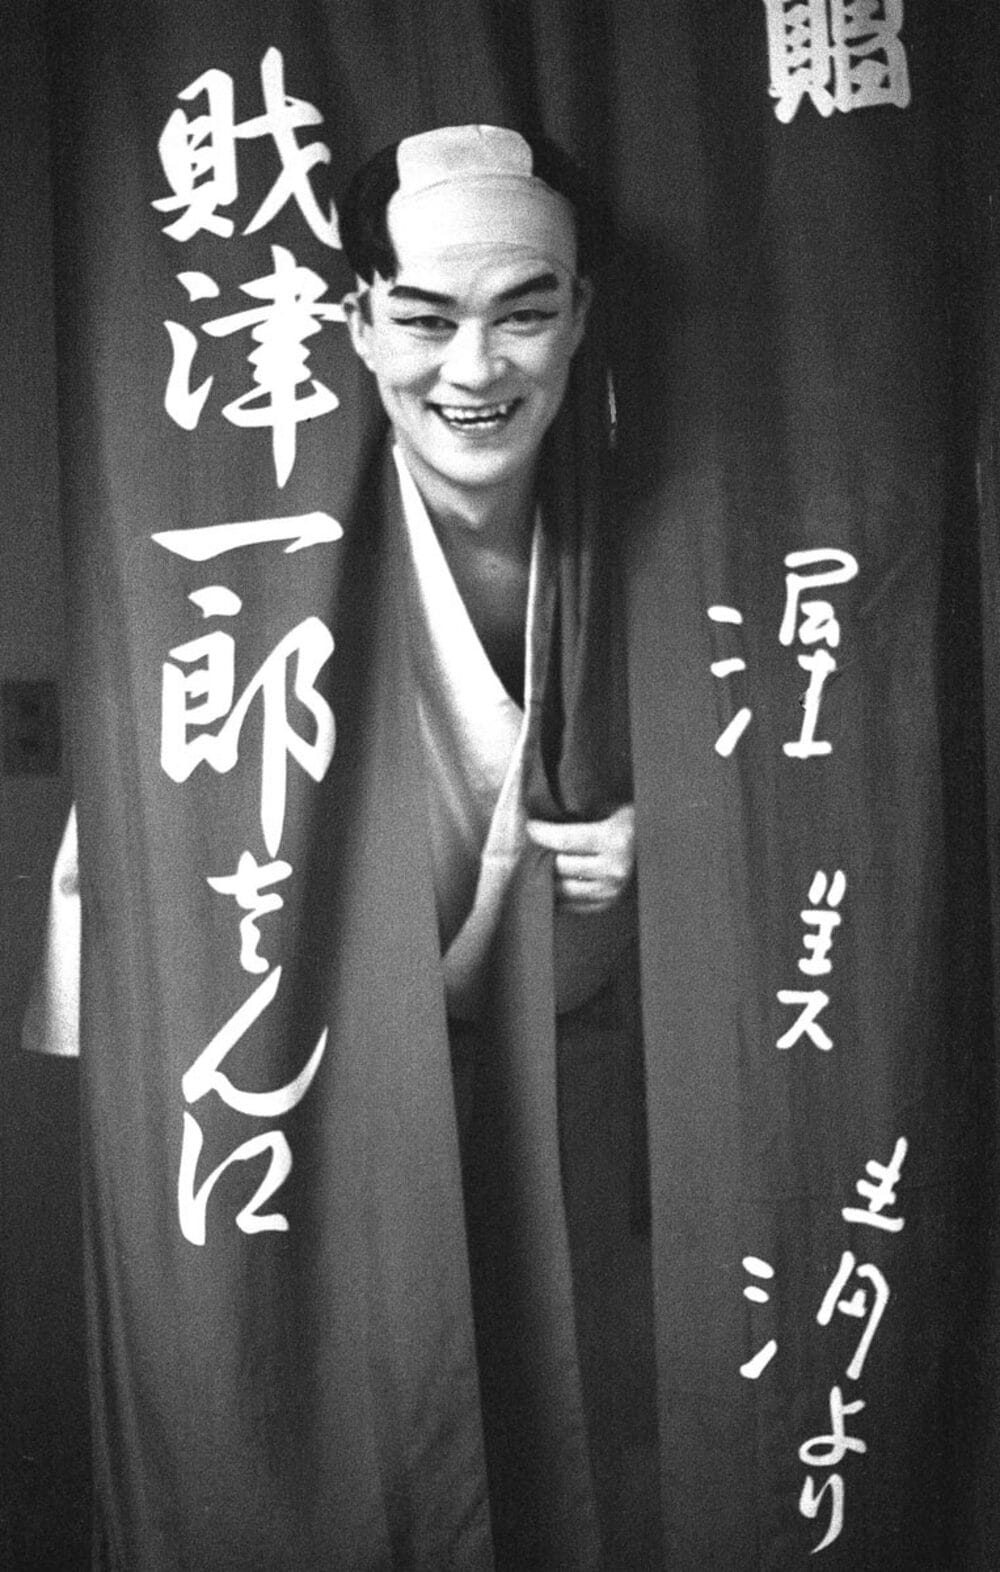 贈
渥美清より
財津一郎さん江